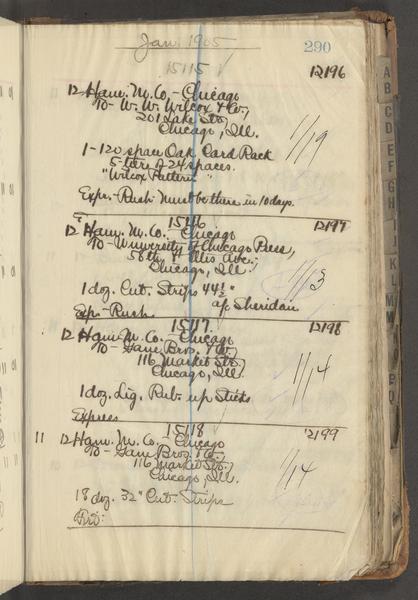 Jan. 1905
290
15115 12196
12 Ham. M. Co. - Chicago
To - W. W. Wilcox & Co.,
201 Lake Str.,
Chicago, Ill.
1/19
1 - 120 space Oak Card Rack
5 tiers of 24 spaces.
"Wilcox Pattern"
Expr. - Rush Must be there in 10 days.
15116 12197
12 Ham. M. Co. - Chicago
To - University of Chicago Press,
58th & Ellis Ave.,
Chicago, Ill.
1/13
1 doz. Cut. Strips 44½"
a/c Sheridan
Exp - Rush
15117 12198
12 Ham. M. Co. - Chicago
To - Gane Bros. & Co.,
116 Market Str.,
Chicago, Ill.
1/14
1 doz. Lig. Rub. up Sticks
Express
15118 12199
11 12 Ham. M. Co. - Chicago
To - Gane Bros. & Co.,
116 Market Str.,
Chicago, Ill.
1/14
18 doz. 32" Cut. Strips
Frt.
A
B
C
D
E
F
G
H